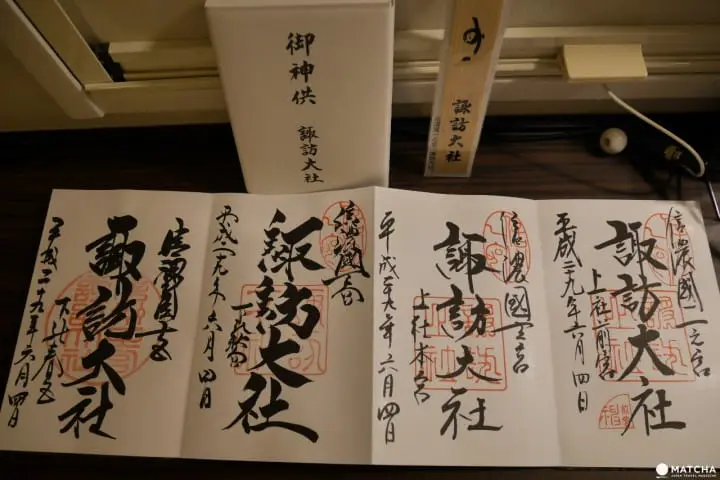 御神供
諏訪大社
諏訪大社
信濃國一之宮
諏訪大社
上社前宮
平成二十九年六月四日
信濃國一之宮
諏訪大社
上社本宮
平成二十九年六月四日
信濃國一之宮
諏訪大社
平成二十九年六月四日
信濃國一之宮
諏訪大社
下社春宮
平成二十九年六月四日
MATCHA
JAPAN TRAVEL MAGAZINE